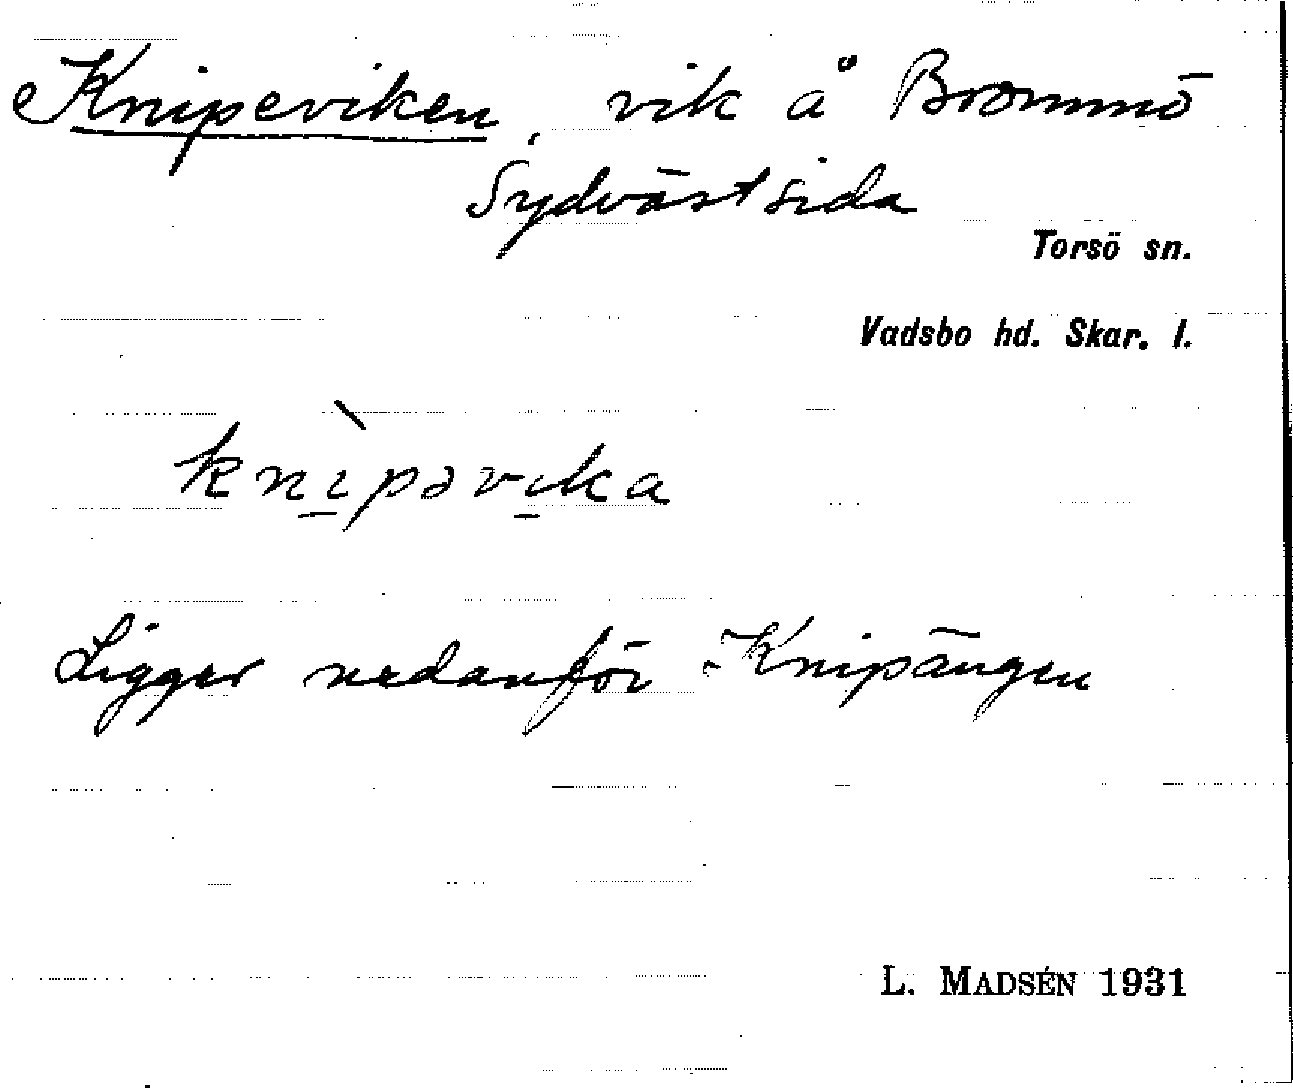 Knipeviken, vik å Brommö
Sydvästsida
Torsö sn.
Vadsbo hd. Skar. l.
knìpəvika
Ligger nedanför Knipängen
L. MADSÉN 1931